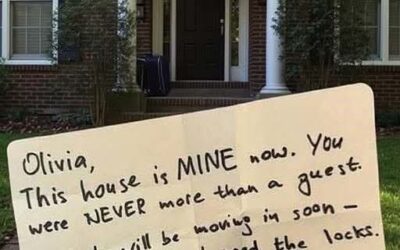 Olivia,
This house is MINE now. You
were NEVER more than a guest.
will be moving in soon —
the locks.